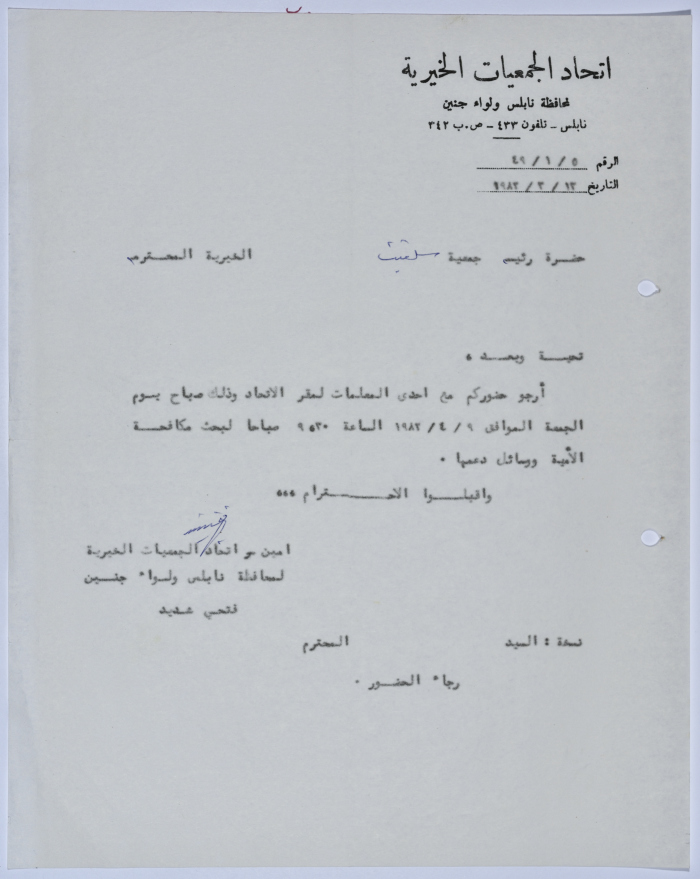 اتحاد الجمعيات الخيرية
لمحافظة نابلس ولواء جنين
نابلس - تلفون ٤٣٣ - ص.ب ٣٤٢
الرقم ٤٩ / ١ / ٥
التاريخ ١٣ / ٣ / ١٩٨٢
حضرة رئيس جمعية سلفيت الخيرية المحترم
تحية وبعد ،
أرجو حضوركم مع احدى المعلمات لمقر الاتحاد وذلك صباح يوم
الجمعة الموافق ٩ / ٤ / ١٩٨٢ الساعة ٩٫٣٠ صباحا لبحث مكافحة
الأمية ووسائل دعمها .
واقبلوا الاحترام ،،،
امين سر اتحاد الجمعيات الخيرية
لمحافظة نابلس ولواء جنين
فتحي شديد
نسخة : السيد المحترم
رجاء الحضور .